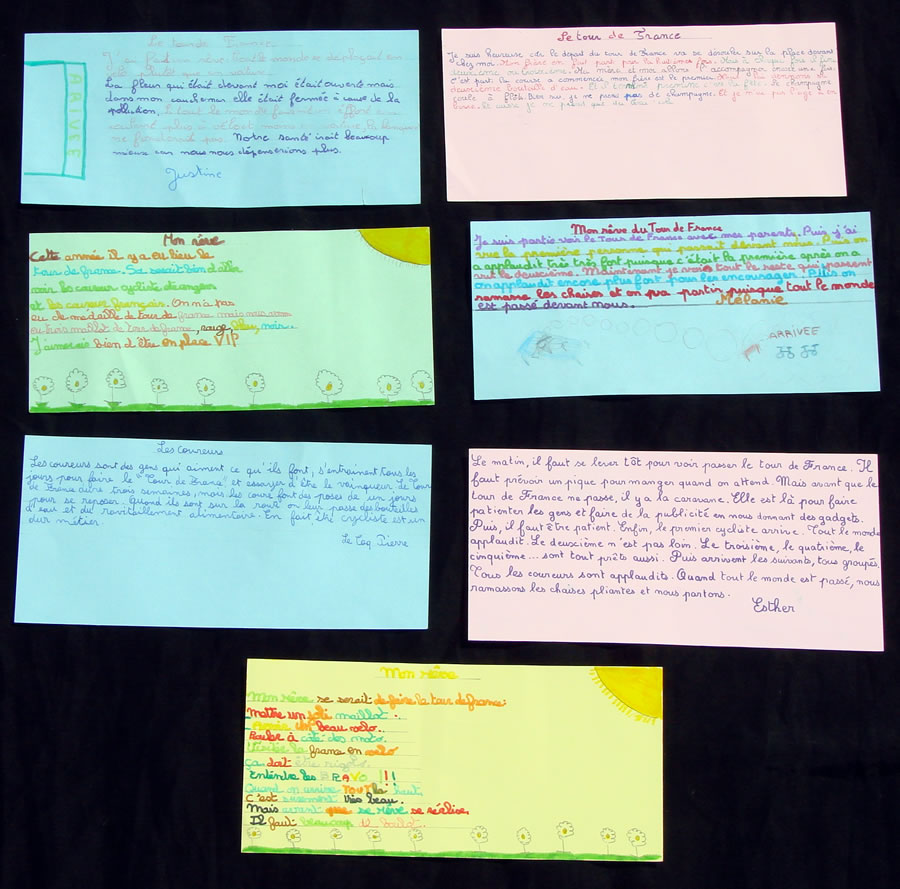 Le tour de France
J'ai fait un rêve. Tout le monde se déplaçait en
vélo plutôt que en voiture.
La fleur qui était devant moi était ouverte mais
dans mon cauchemar elle était fermée à cause de la
pollution. Si tout le monde faisait un effort on
plus
ne fonderait pas. Notre santé irait beaucoup
mieux car nous nous dépenserions plus.
Justine
ARRIVÉE
Le tour de France
Je suis heureuse car le départ du tour de France va se dérouler sur la place devant
chez moi. Mon frère en fait parti pour la huitième fois. Mais à chaque fois il finit
deuxième ou troisième. Ma mère et moi allons l'accompagner encore une fois.
C'est parti la course a commencé mon frère est le premier.
deuxième bouteille d'eau. Et premier c'est la fête. Le champagne
coule à flots. Bien sur je ne passe pas de champagne. Et je n'ai pas l'age d'en
Mon rêve
Cette année il y a eu lieu le
tours de france. Sa serait bien d'aller
voir les coureur cycliste étrangers
et les coureur français. On n'a pas
eu de medaille de tour de france mais nous avons
eu trois maillot de tour de france, rouge, bleu, noir..
J'aimerais bien d'être en place VIP
Mon rêve du Tour de France
Je suis partie voir le Tour de France avec mes parents. Puis j'ai
vue la première personne qui passait devant nous. Puis on
a applaudit très très fort puisque c'était la première après on a
vu le deuxième. Maintenant je vois tout le reste qui passent
on applaudit encore plus fort pour les encourager. Puis on
ramasse les chaises et on va partir puisque tout le monde
est passé devant nous. Mélanie
ARRIVEE
Les Coureurs
Les coureurs sont des gens qui aiment ce qu'ils font, s'entrainent tous les
jours pour faire le "Tour de France" et essayer d'être le vainqueur. Le Tour
de France dure trois semaines, mais les coureurs font des poses de un jours
pour se reposer. Quand ils sont sur la route on leur passe des bouteilles
d'eau et du ravitaillement alimentaire. En fait être cycliste est un
dur métier.
Le Coq Pierre
Le matin, il faut se lever tôt pour voir passer le tour de France. Il
faut prévoir un pique pour manger quand on attend. Mais avant que le
tour de France ne passe, il y a la caravane. Elle est là pour faire
patienter les gens et faire de la publicité en nous donnant des gadgets.
Puis, il faut être patient. Enfin, le premier cycliste arrive. Tout le monde
applaudit. Le deuxième n'est pas loin. Le troisième, le quatrième, le
cinquième... sont tout prêts aussi. Puis arrivent les suivants, tous groupés.
Tous les coureurs sont applaudits. Quand tout le monde est passé, nous
ramassons les chaises pliantes et nous partons.
Esther
Mon rêve
Mon rêve se serait de faire le tour de france:
Mettre un joli maillot.
Avoir un beau velo..
Rouler à coté des moto.
Visiter la france en velo
ça doit être rigolo.
Entendre les BRAVO !!!
Quand on arrive TOUT la haut
C'est surement très beau.
Mais avant que se rêve se réalise,
Il faut beaucoup de boulot..